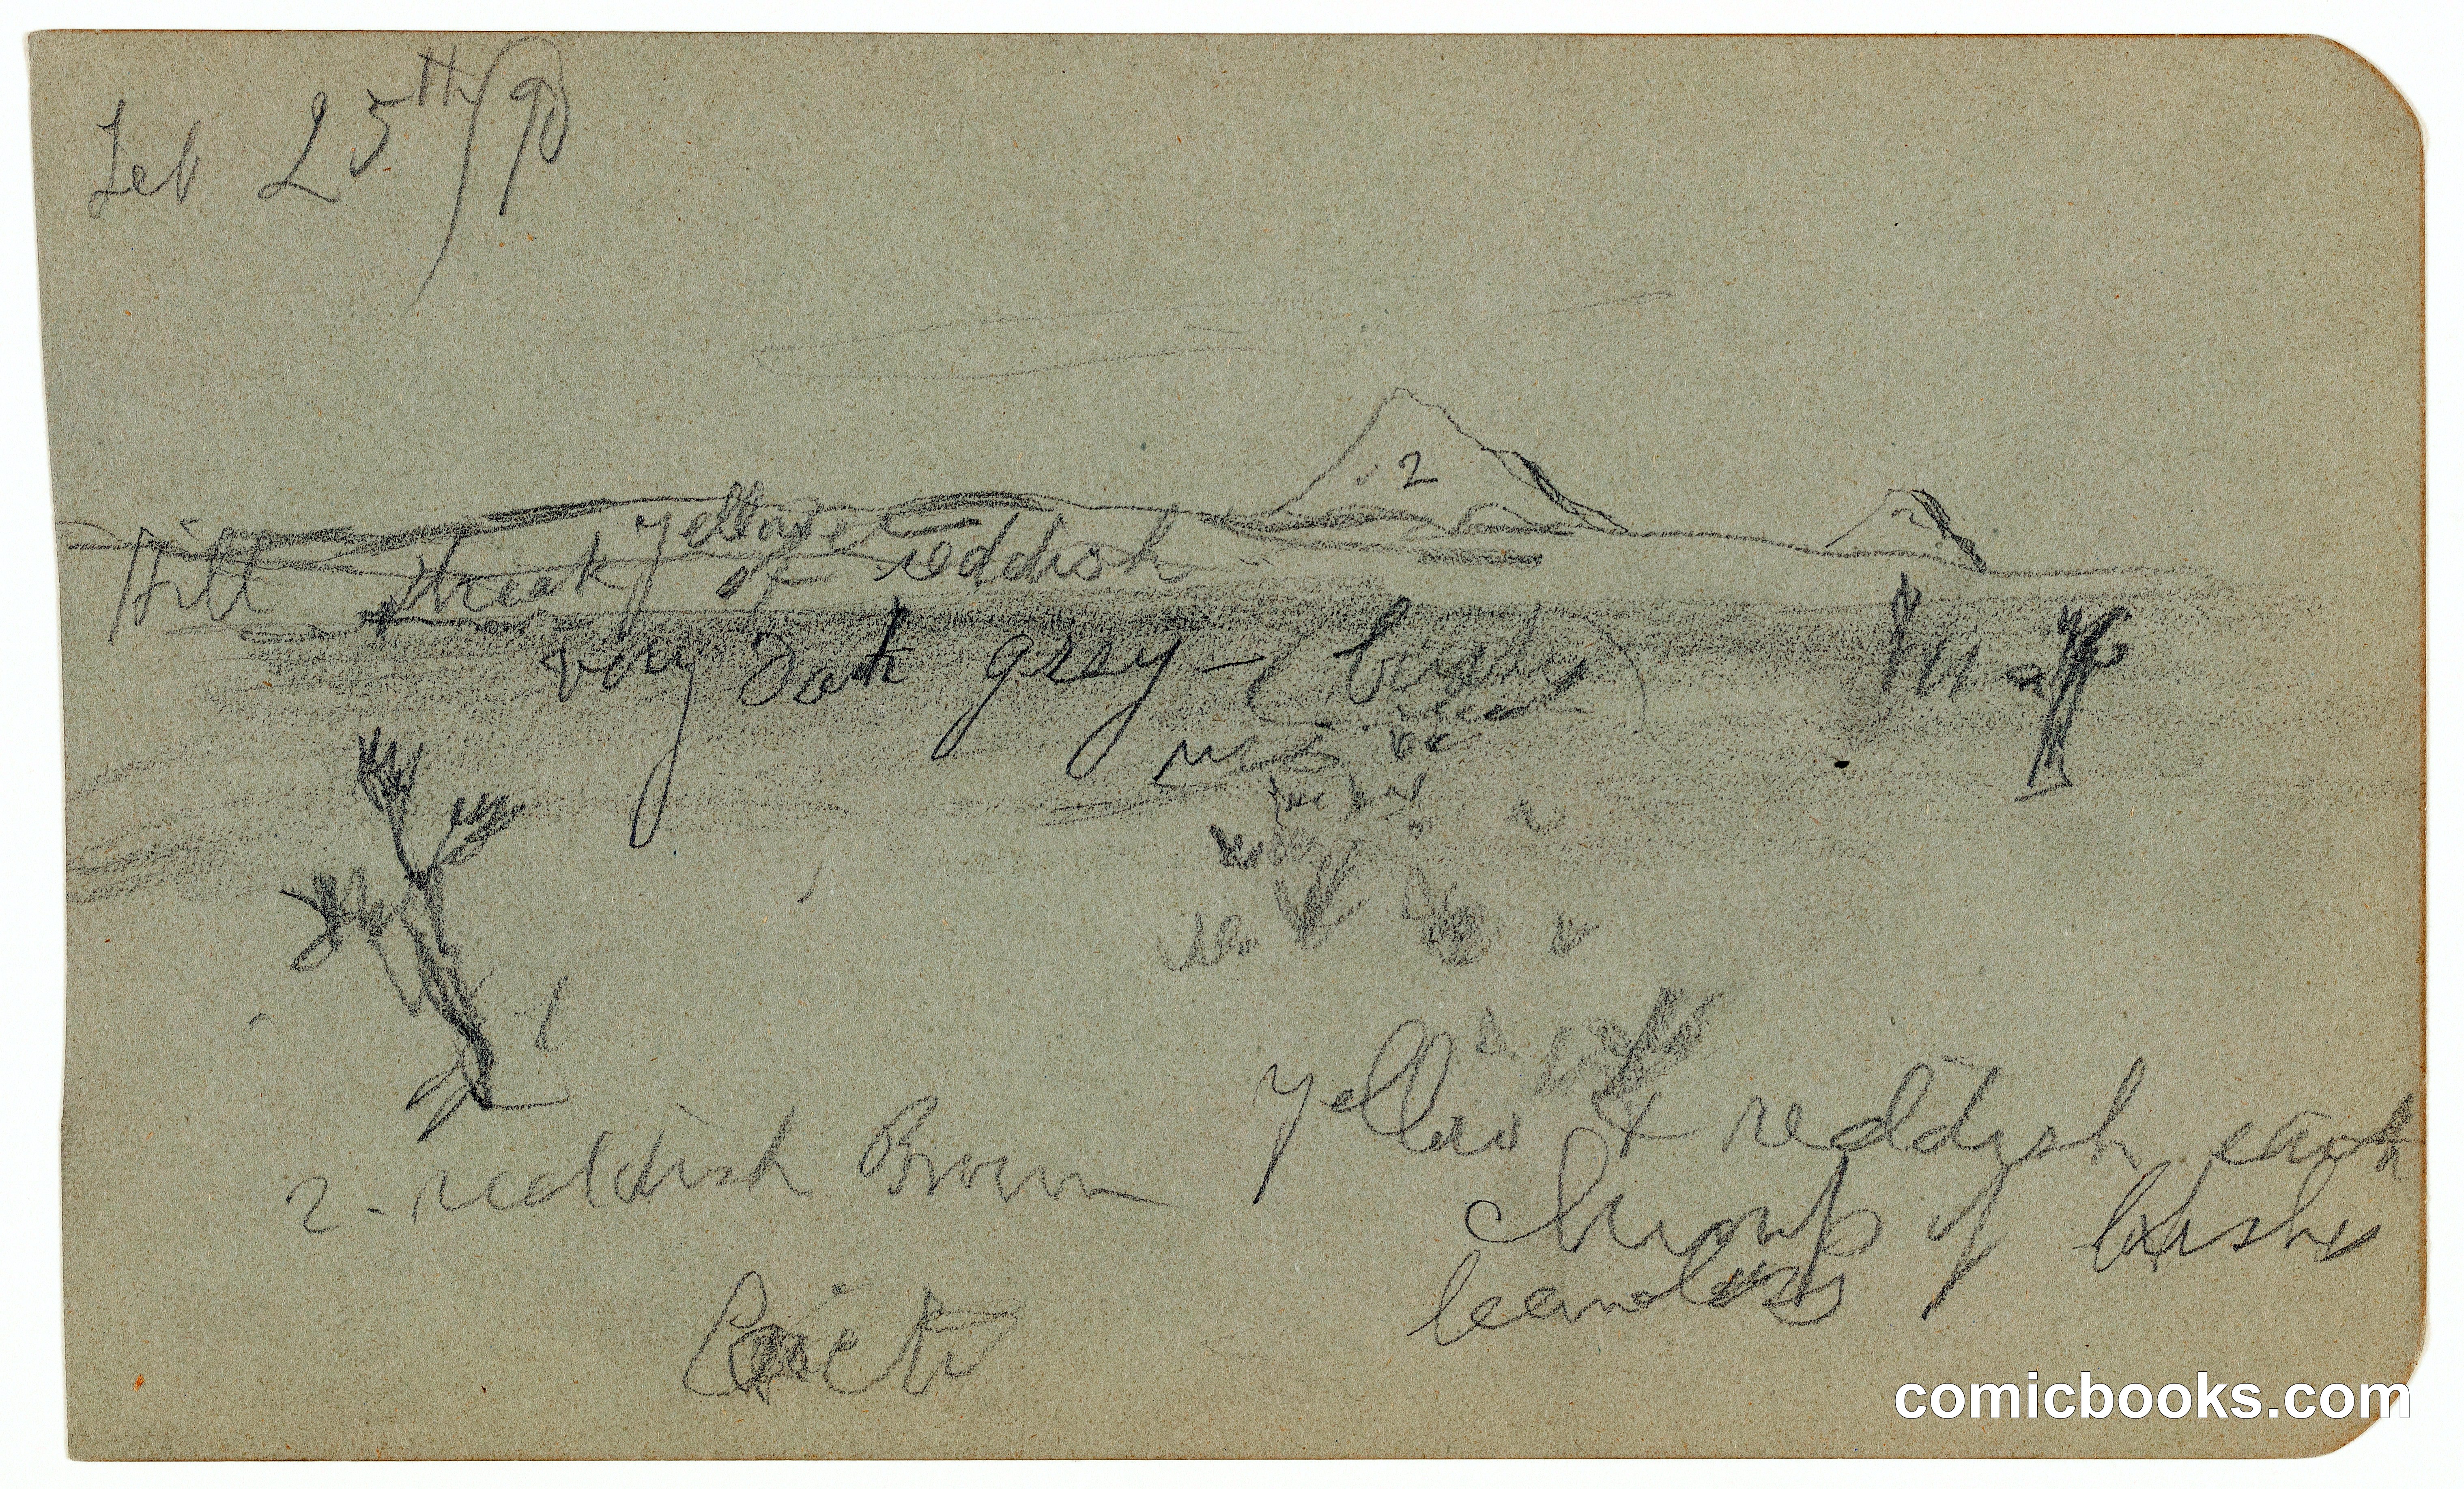 Feb 25th/90
2
Hill streak yellow
of reddish
very Dark grey - (bushes)
yellow & reddish earth
2 - reddish Brown
Clumps of bushes
leafless
comicbooks.com